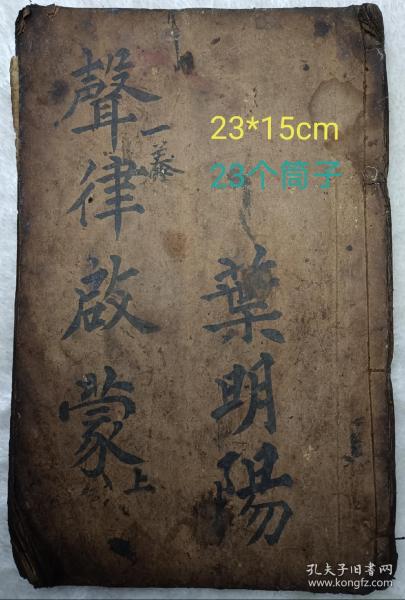 聲律啟蒙
上
葉明陽
23*15cm
23个筒子
孔夫子旧书网
www.kongfz.com